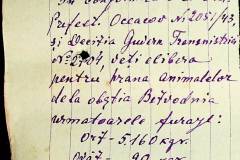 Prefect. Oceacov Nº 2051/43,
și Decizia Guvern. Transnistriei
Nº 2704, veți elibera
pentru hrana animalelor
dela obștia Betvodnia
urmatoarele furaje:
Orz - 5.160 kgr.